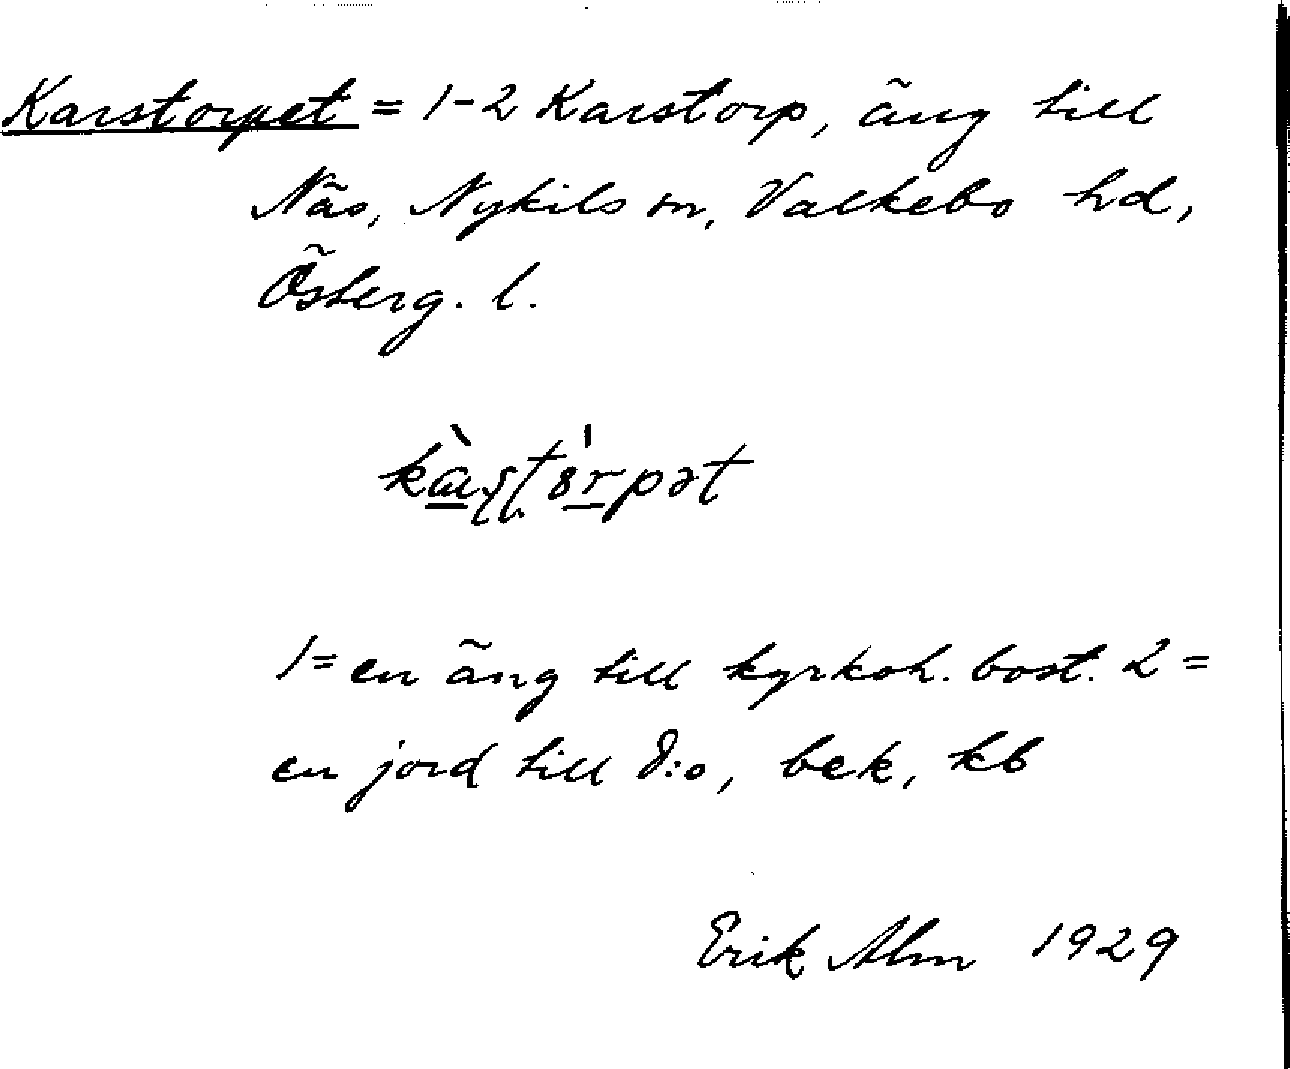 Karstorpet = 1-2 Karstorp, äng till
Näs, Nykils sn, Valkebo hd,
Österg. l.
1= en äng till kyrkoh. bost. 2 =
en jord till d:o, bek, kb
Erik Alm 1929